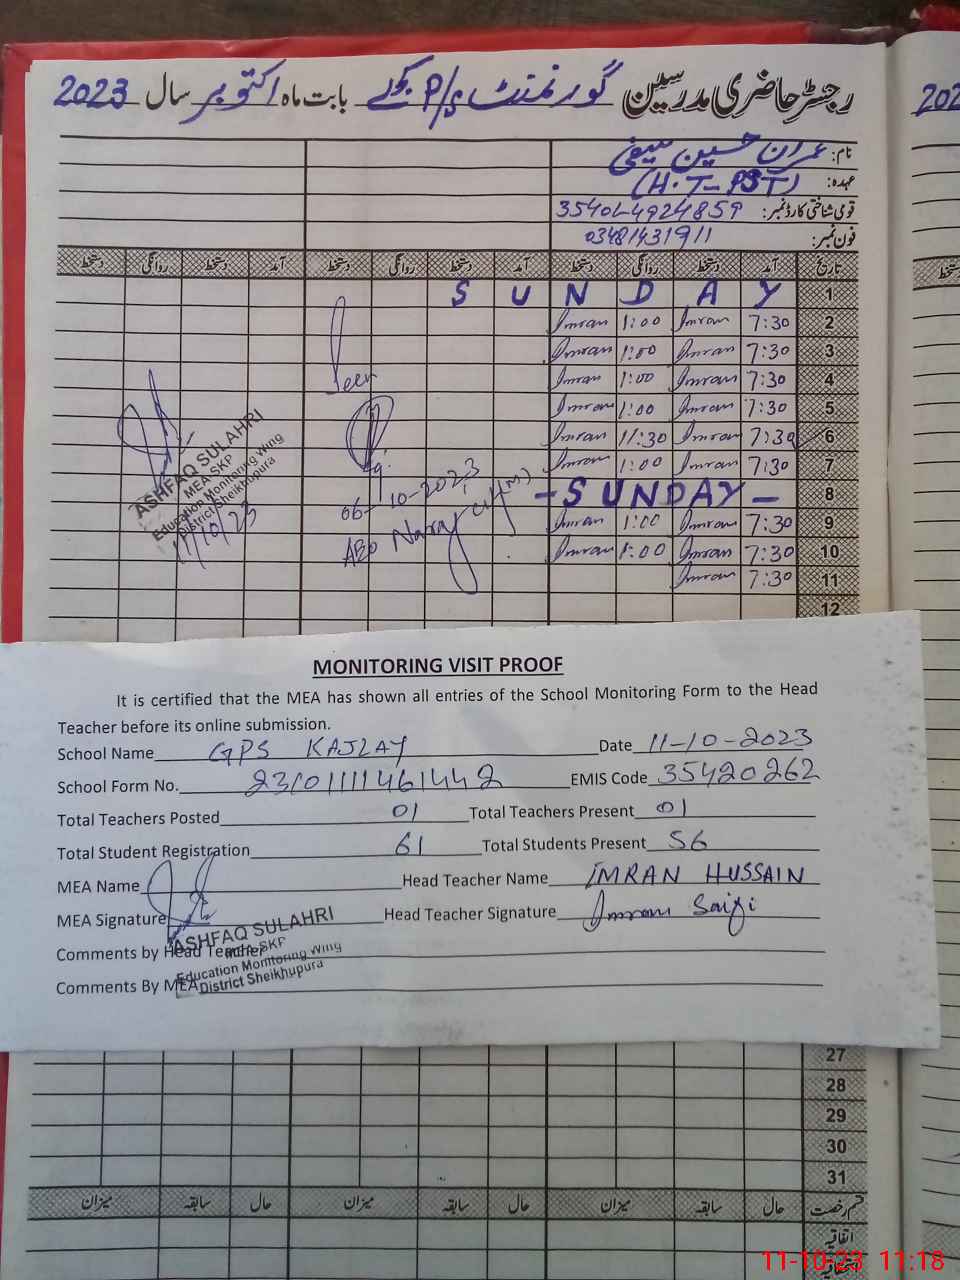 رجسٹر حاضری مدرسین گورنمنٹ P/S کجلے بابت ماہ اکتوبر سال 2023
نام: عمران حسین سیفی
عہدہ: (H.T-PST)
قومی شناختی کارڈ نمبر:
فون نمبر: 03481431911
تاریخ آمد دستخط روانگی دستخط آمد دستخط روانگی دستخط آمد دستخط روانگی دستخط
1 SUNDAY
2 7:30 Imran 1:00 Imran
3 7:30 Imran 1:00 Imran
4 7:30 Imran 1:00 Imran
5 7:30 Imran 1:00 Imran
6 7:30 Imran 11:30 Imran
7 7:30 Imran 1:00 Imran
8 -SUNDAY-
9 7:30 Imran 1:00 Imran
10 7:30 Imran 1:00 Imran
11 7:30 Imran
12
Seen
06-10-2023
AEO
ASHFAQ SULAHRI
MEA SKP
Education Monitoring Wing
District Sheikhupura
11/10/23
MONITORING VISIT PROOF
It is certified that the MEA has shown all entries of the School Monitoring Form to the Head
Teacher before its online submission.
School Name GPS KAJLAY Date 11-10-2023
School Form No. 23101111461442 EMIS Code 35420262
Total Teachers Posted 01 Total Teachers Present 01
Total Student Registration 61 Total Students Present 56
MEA Name Head Teacher Name IMRAN HUSSAIN
MEA Signature Head Teacher Signature Imran Saifi
ASHFAQ SULAHRI
Comments by Head Teacher
MEA SKP
Education Monitoring Wing
Comments By MEA
District Sheikhupura
27
28
29
30
31
قسم رخصت حال سابقہ میزان حال سابقہ میزان حال سابقہ میزان
اتفاقیہ
11-10-23 11:18